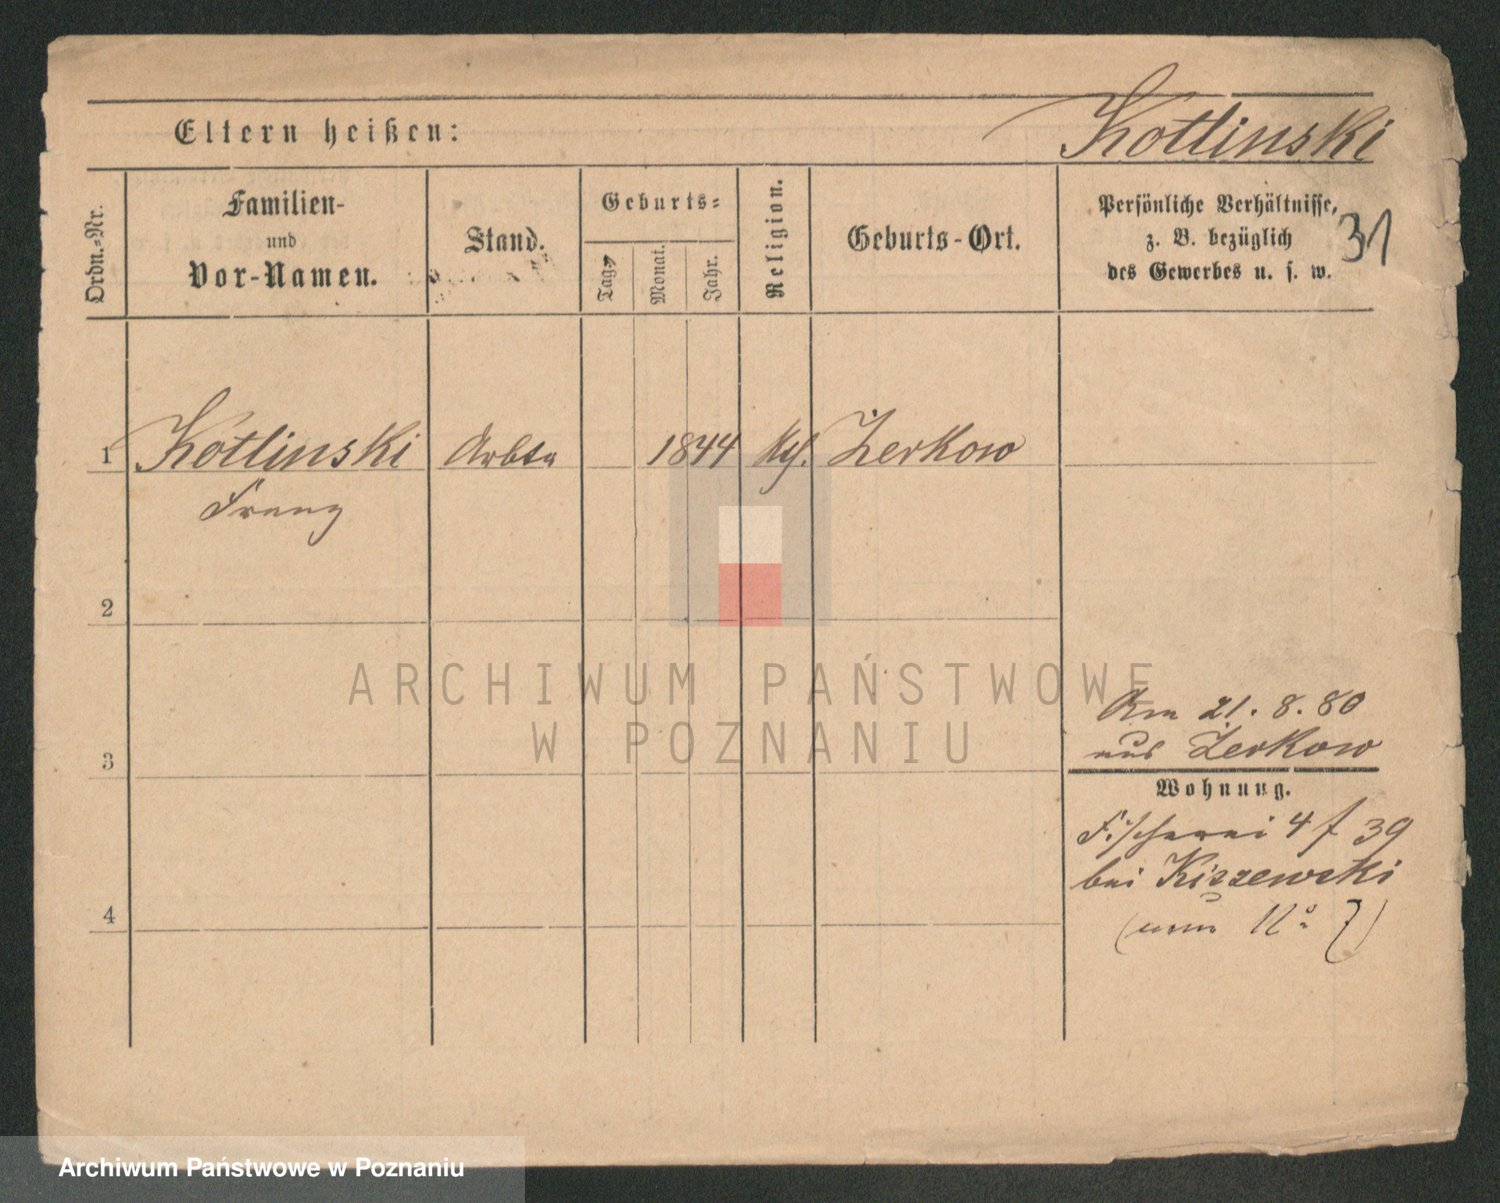 Kotlinski
Eltern heißen:
31
Ordn.-Nr.
Familien-
und
Vor-Namen.
Stand.
Geburts-
Tag.
Monat.
Jahr.
Religion.
Geburts-Ort.
Persönliche Verhältnisse,
z. B. bezüglich
des Gewerbes u. s. w.
1 Kotlinski Arbtr 1844 Zerkow
Franz
2
3
4
Am 21. 8. 80
aus Zerkow
Wohnung.
Fischerei 4 f 39
bei Kiszewski
(nun No 7)
ARCHIWUM PAŃSTWOWE
W POZNANIU
Archiwum Państwowe w Poznaniu